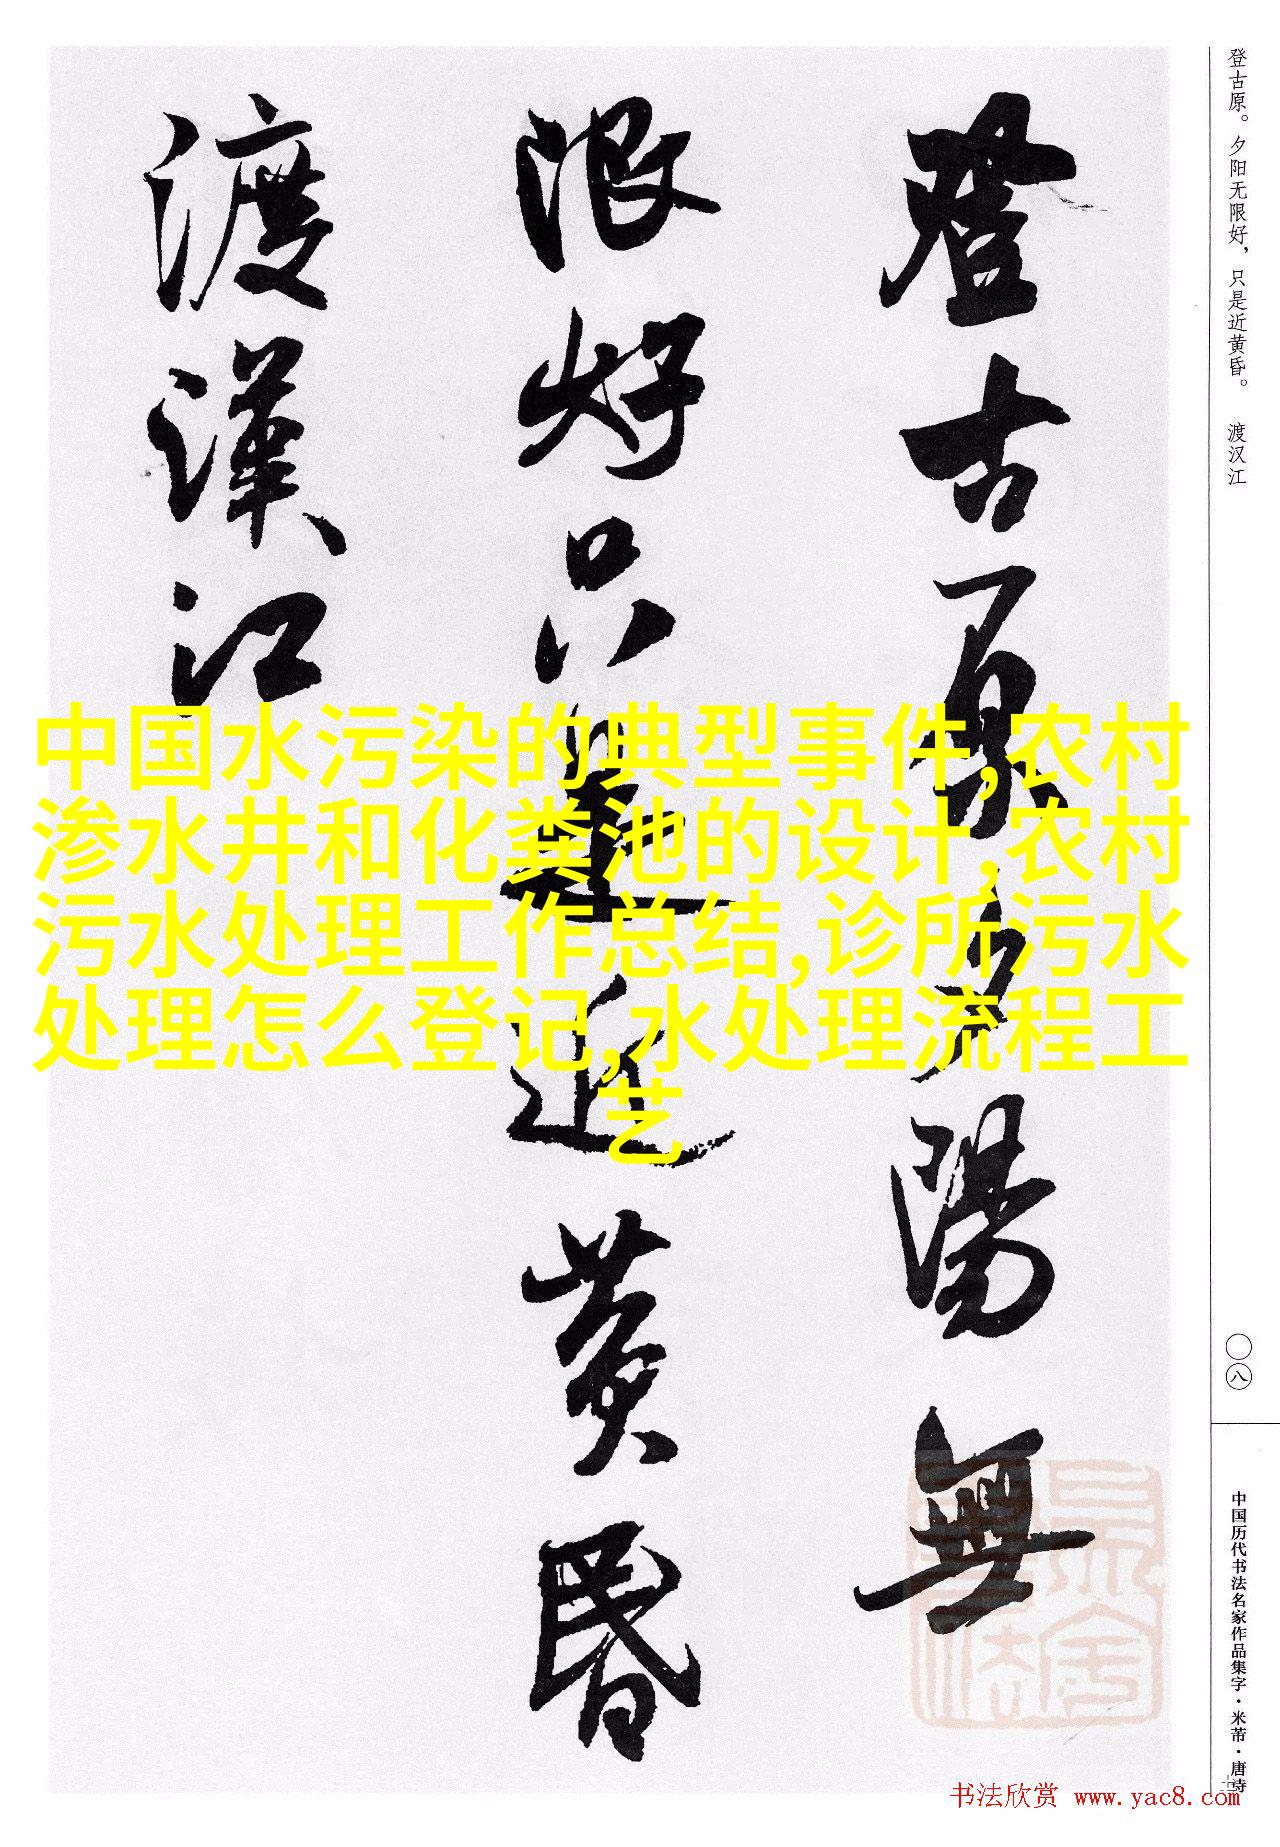 登古原。夕阳无限好，只是近黄昏。 渡汉江
登古原夕陽無
限好只是近黄昏
渡漢江
中国水污染的典型事件,农村
渗水井和化粪池的设计,农村
污水处理工作总结,诊所污水
处理怎么登记,水处理流程工
艺
〇八
中国历代书法名家作品集字·米芾·唐诗
书法欣赏 www.yac8.com